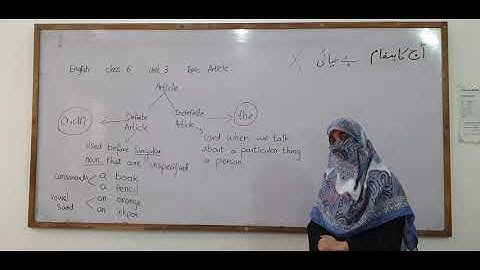 English class 6 Unit 3 Topic Article
آج کا پیغام بے حیائی X
Article
a, an
Definite Article
Indefinite Article
the
Used before Singular
noun that are unspecified
Used when we talk
about a particular thing
or person
Consonants a book
a pencil
Vowel Sound an orange
an inkpot